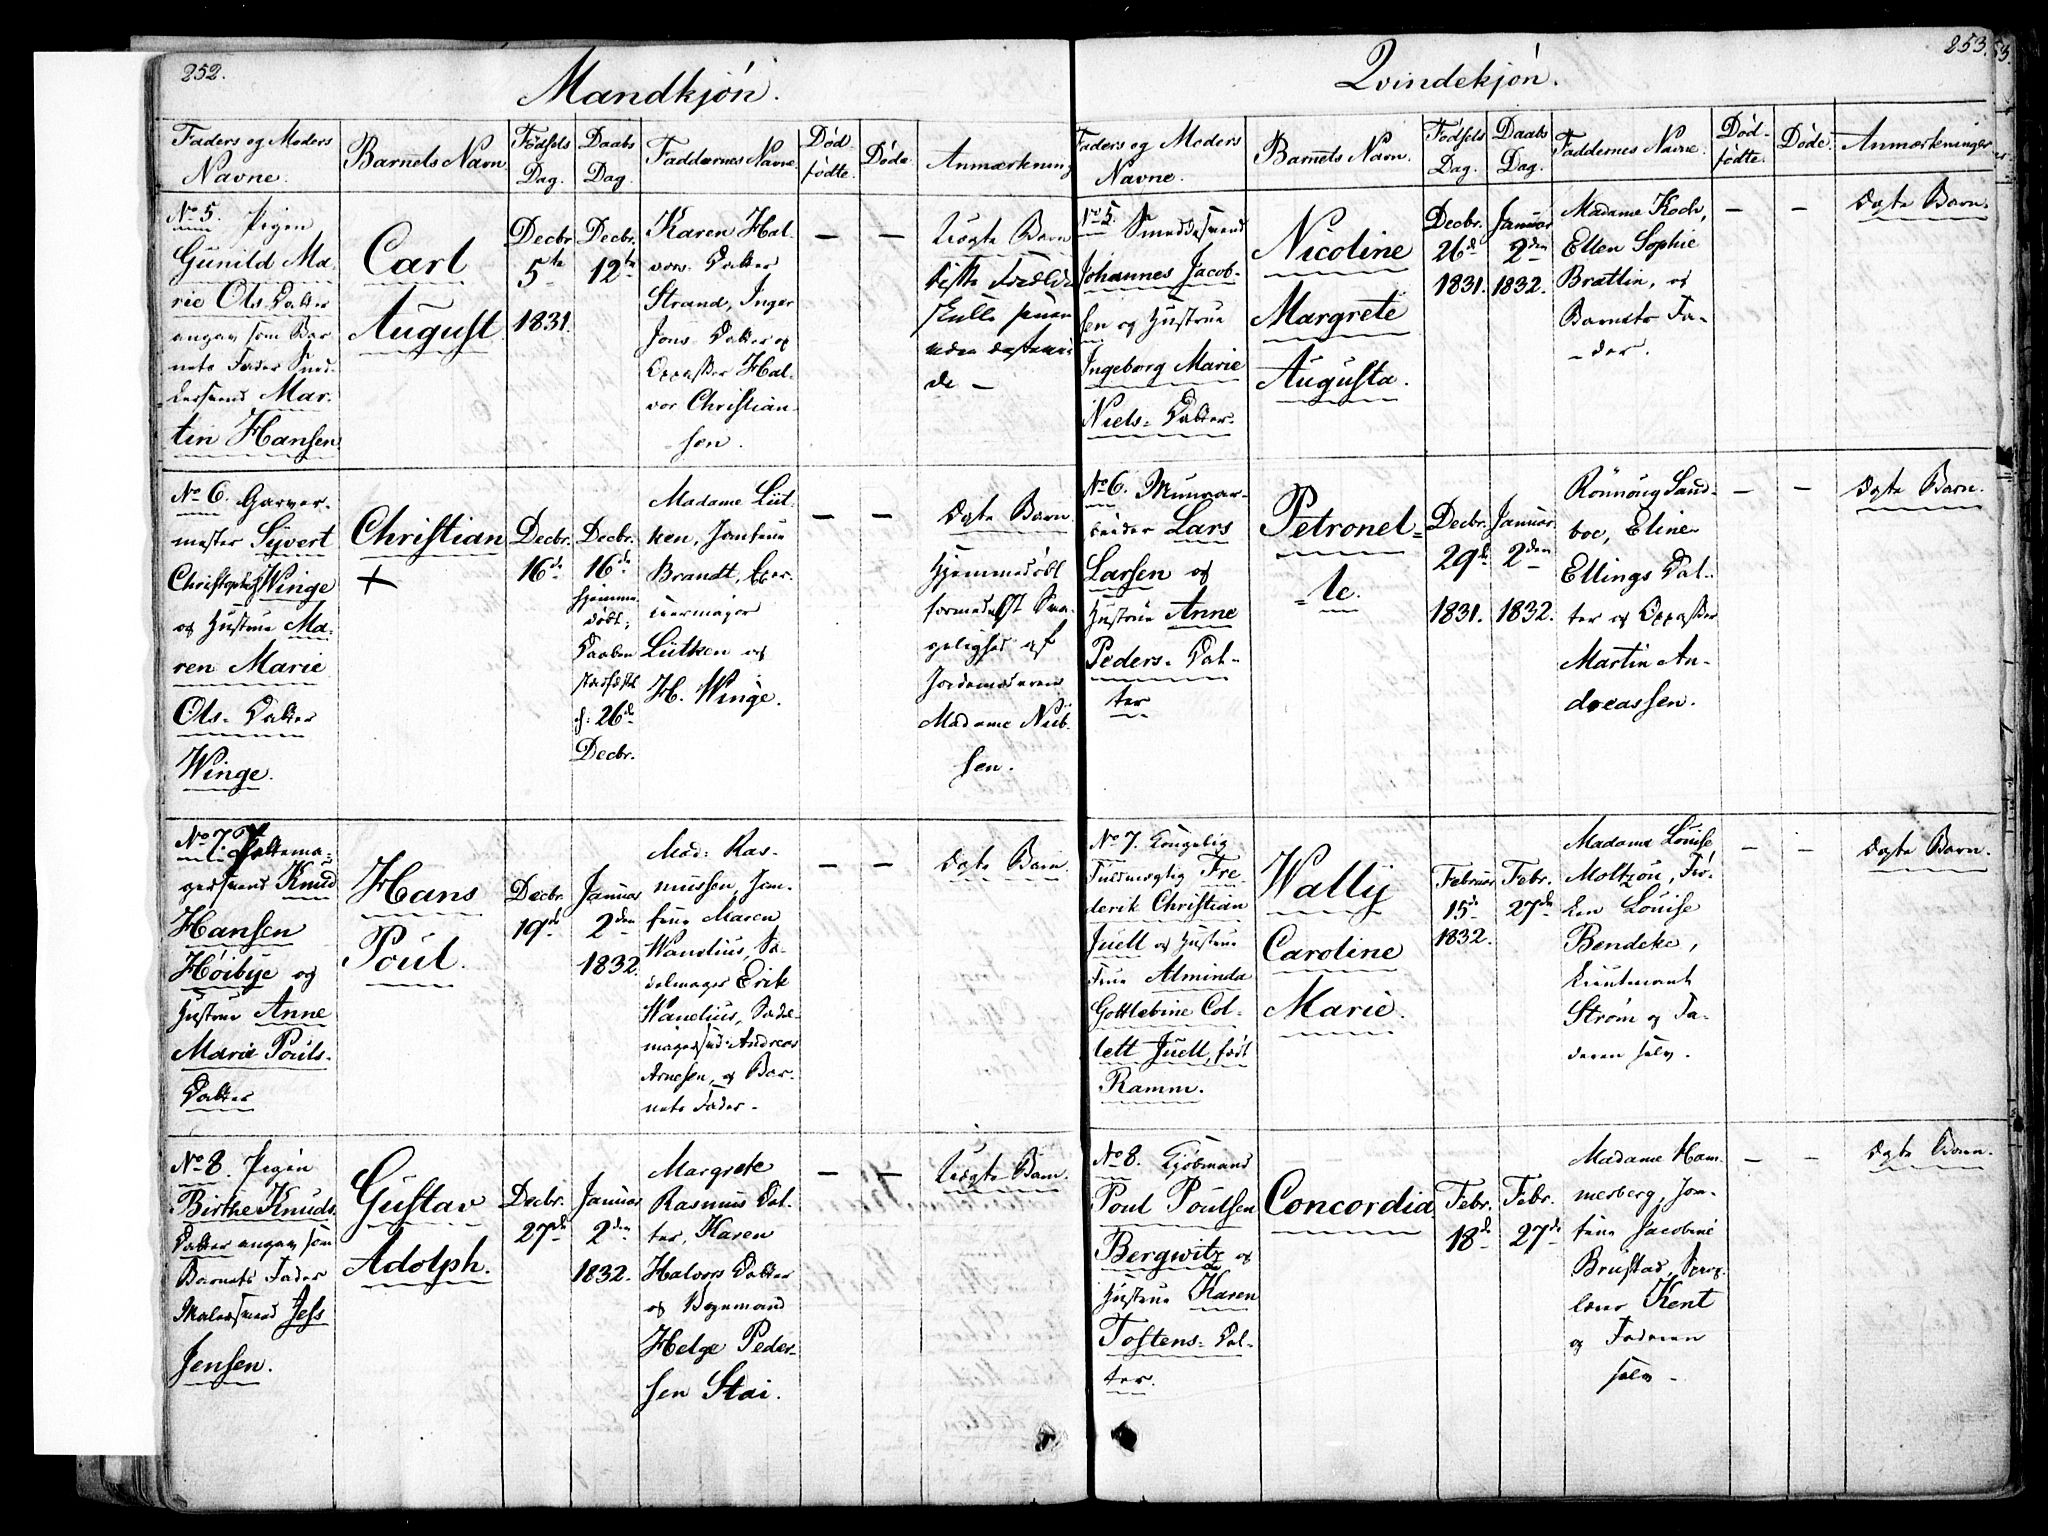 252.
Mandkjøn.
Faders og Moders
Navne.
Barnets Navn
Fødsels
Dag.
Daabs
Dag.
Faddernes Navne
Død
fødte.
Døde
Anmærkning
No 5. Pigen
Gunild Ma-
rie Ols-Datter
angav som Bar
nets Fader Smed
desvend Mar-
tin Hansen
Carl
August
Decbr.
5te
1831.
Decbr.
12te
Karen Hal-
vors. Datter
Strand, Inger
Jons. Datter og
Oppasser Hal-
vor Christian-
sen.
— —
Uægte Barn
de
No 6. Garver-
mester Sijvert
Christopher Winge
og Hustrue Ma-
ren Marie
Ols. Datter
Winge.
Christian
+
Decbr.
16de
Decbr.
16de
hjemme
døbt;
Daaben
stadfæstet
d: 26de
Decbr.
Madame Lüt-
ken, Jomfrue
Brandt,
Lütken og
H. Winge.
— —
Ægte Barn.
Hjemmedøbt
formedelst Sva-
gelighed af
Jordemoderen
Madame Niel-
sen.
No 7. Pottema-
gersvend Knud
Hansen
Høibye og
Hustrue Anne
Marie Pouls-
Datter
Hans
Poul.
Decbr.
19de
Januar
2den
1832
Mad: Ras-
mussen, Jom-
frue Maren
Wandius, Sa-
delmager Erik
Wandius, Sadel-
magersvd. Andreas
Arnesen, og Bar-
nets Fader.
— —
Ægte Barn.
No 8. Pigen
Birthe Knuds.
Datter angav som
Barnets Fader
Malersvend Jess
Jensen.
Gustav
Adolph.
Decbr.
27de
Januar
2den
1832.
Margrete
Rasmus Dat-
ter, Karen
Halvors Datter
og Bogmand
Helge Peder-
sen Stai.
— —
Uægte Barn.
253.
Qvindekjøn.
Faders og Moders
Navne.
Barnets Navn.
Fødsels
Dag.
Daabs
Dag.
Faddernes Navne.
Død-
fødte.
Døde.
Anmærkninger
No 5. Smeddesvend
Johannes Jacob-
sen og Hustrue
Ingeborg Marie
Niels- Datter-
Nicoline
Margrete
Augusta.
Decbr.
26de
1831.
Januar
2den
1832.
Madame Koch,
Ellen Sophie
Brattlin, og
Barnets Fa-
der.
— —
Ægte Barn.
No 6. Muurar-
beider Lars
Larsen og
Hustrue Anne
Peders- Dat-
ter
Petronel-
le.
Decbr.
29de
1831.
Januar
2den
1832.
Rönnoug Sand-
boe, Eline
Ellings Dat-
ter og Oppasser
Martin An-
dreassen.
— —
Ægte Barn.
No 7. Kongelig
Fuldmægtig Fre-
derik Christian
Juell og Hustrue
Frue Alminda
Gottlebine Col-
lett Juell, født
Ramm.
Wally
Caroline
Marie.
Februar
15de
1832.
Febr.
27de
Madame Louise
Moltzou, Frø-
ken Louise
Bendeke,
Lieutenant
Strøm og Fa-
deren selv.
— —
Ægte Barn.
No 8. Kjøbmand
Poul Poulsen
Bergwitz og
Hustrue Karen
Tostens- Dat-
ter.
Concordia.
Febr.
18de
Febr.
27de
Madame Ham-
merberg, Jom-
frue Jacobine
Brustad,
Kent
og Faderen
selv
— —
Ægte Barn.